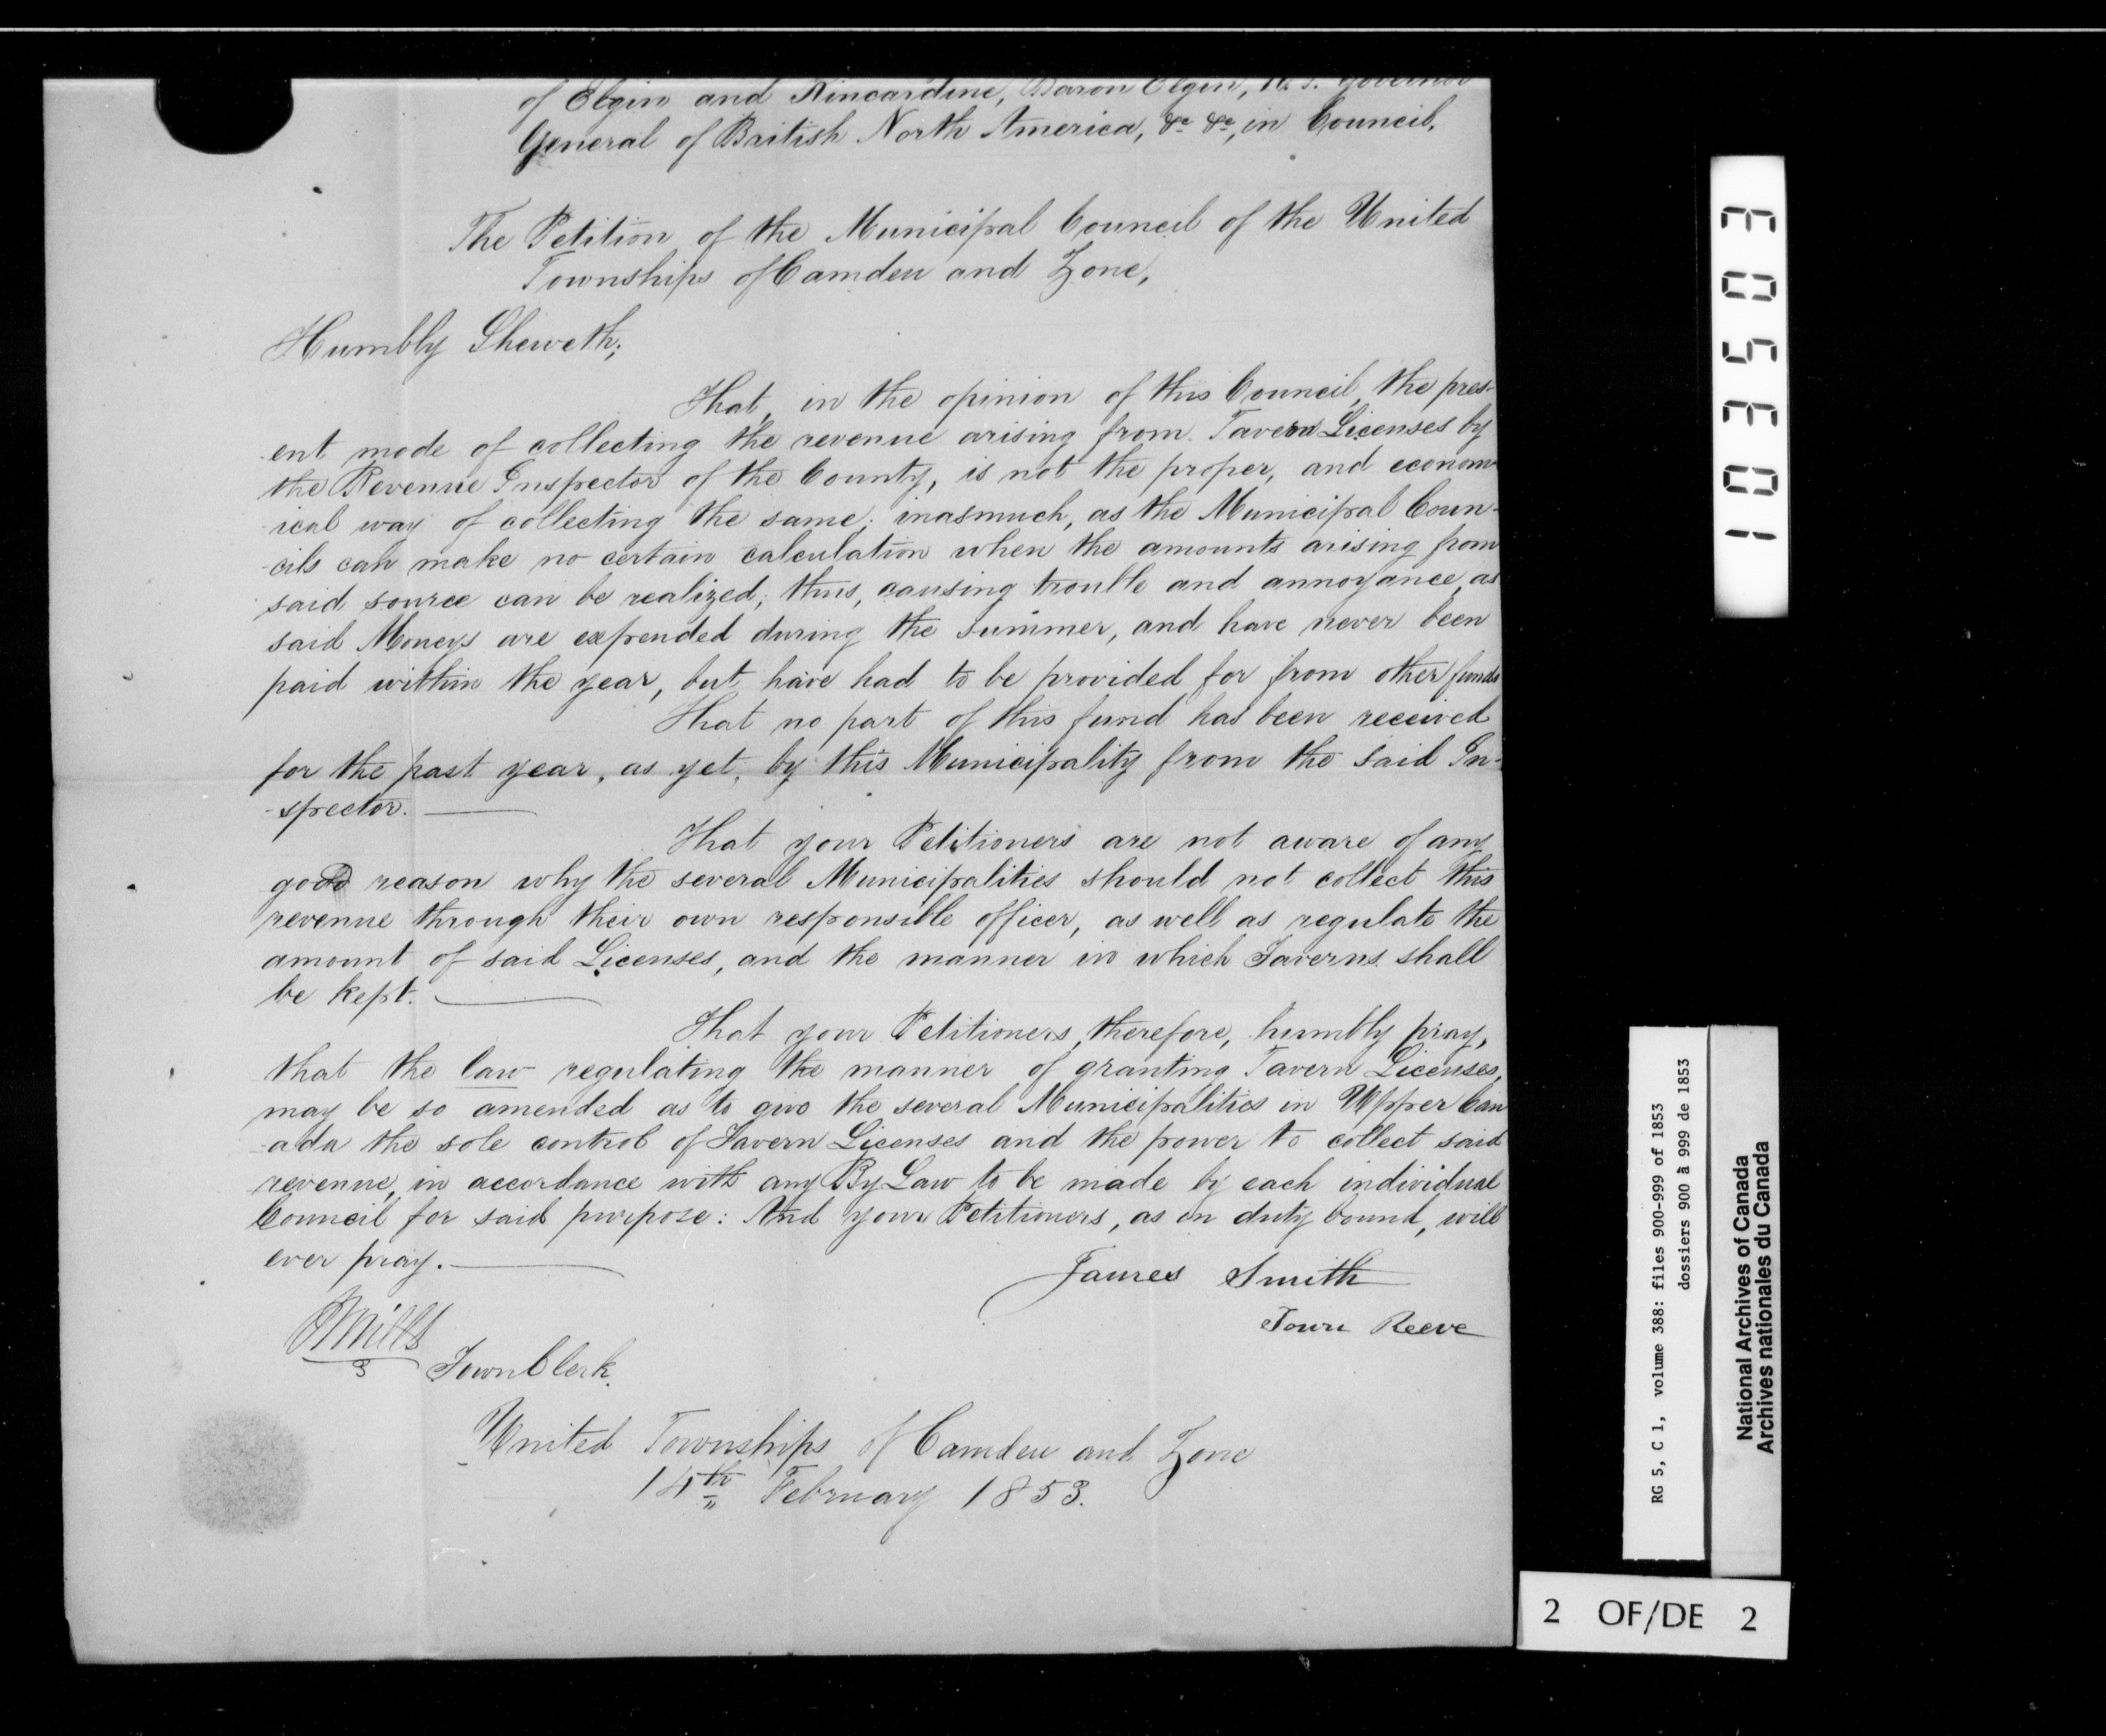 of Elgin and Kincardine, Baron Elgin, K. T. Governor
General of British North America, &c &c, in Council.
The Petition of the Municipal Council of the United
Townships of Camden and Zone,
Humbly Sheweth;
That, in the opinion of this Council, the pres-
ent mode of collecting the revenue arising from Tavern Licenses by
the Revenue Inspector of the County, is not the proper, and econom-
ical way of collecting the same; inasmuch, as the Municipal Coun-
-cils can make no certain calculation when the amounts arising from
said source can be realized; thus, causing trouble and annoyance, as
said Moneys are expended during the summer, and have never been
paid within the year, but have had to be provided for from other funds
That no part of this fund has been received
for the past year, as yet, by this Municipality from the said In-
-spector.
That your Petitioners are not aware of any
good reason why the several Municipalities should not collect this
revenue through their own responsible officer, as well as regulate the
amount of said Licenses, and the manner in which Taverns shall
be kept.
That your Petitioners, therefore, humbly pray,
that the law regulating the manner of granting Tavern Licenses,
may be so amended as to give the several Municipalities in Upper Can
-ada the sole control of Tavern Licenses and the power to collect said
revenue, in accordance with any By Law to be made by each individual
Council for said purpose: And your Petitioners, as in duty bound, will
ever pray.
James Smith
Town Reeve
Mills
Town Clerk.
United Townships of Camden and Zone
14th February 1853.
103503
RG 5, C 1, volume 388: files 900-999 of 1853
dossiers 900 à 999 de 1853
National Archives of Canada
Archives nationales du Canada
2 OF/DE 2